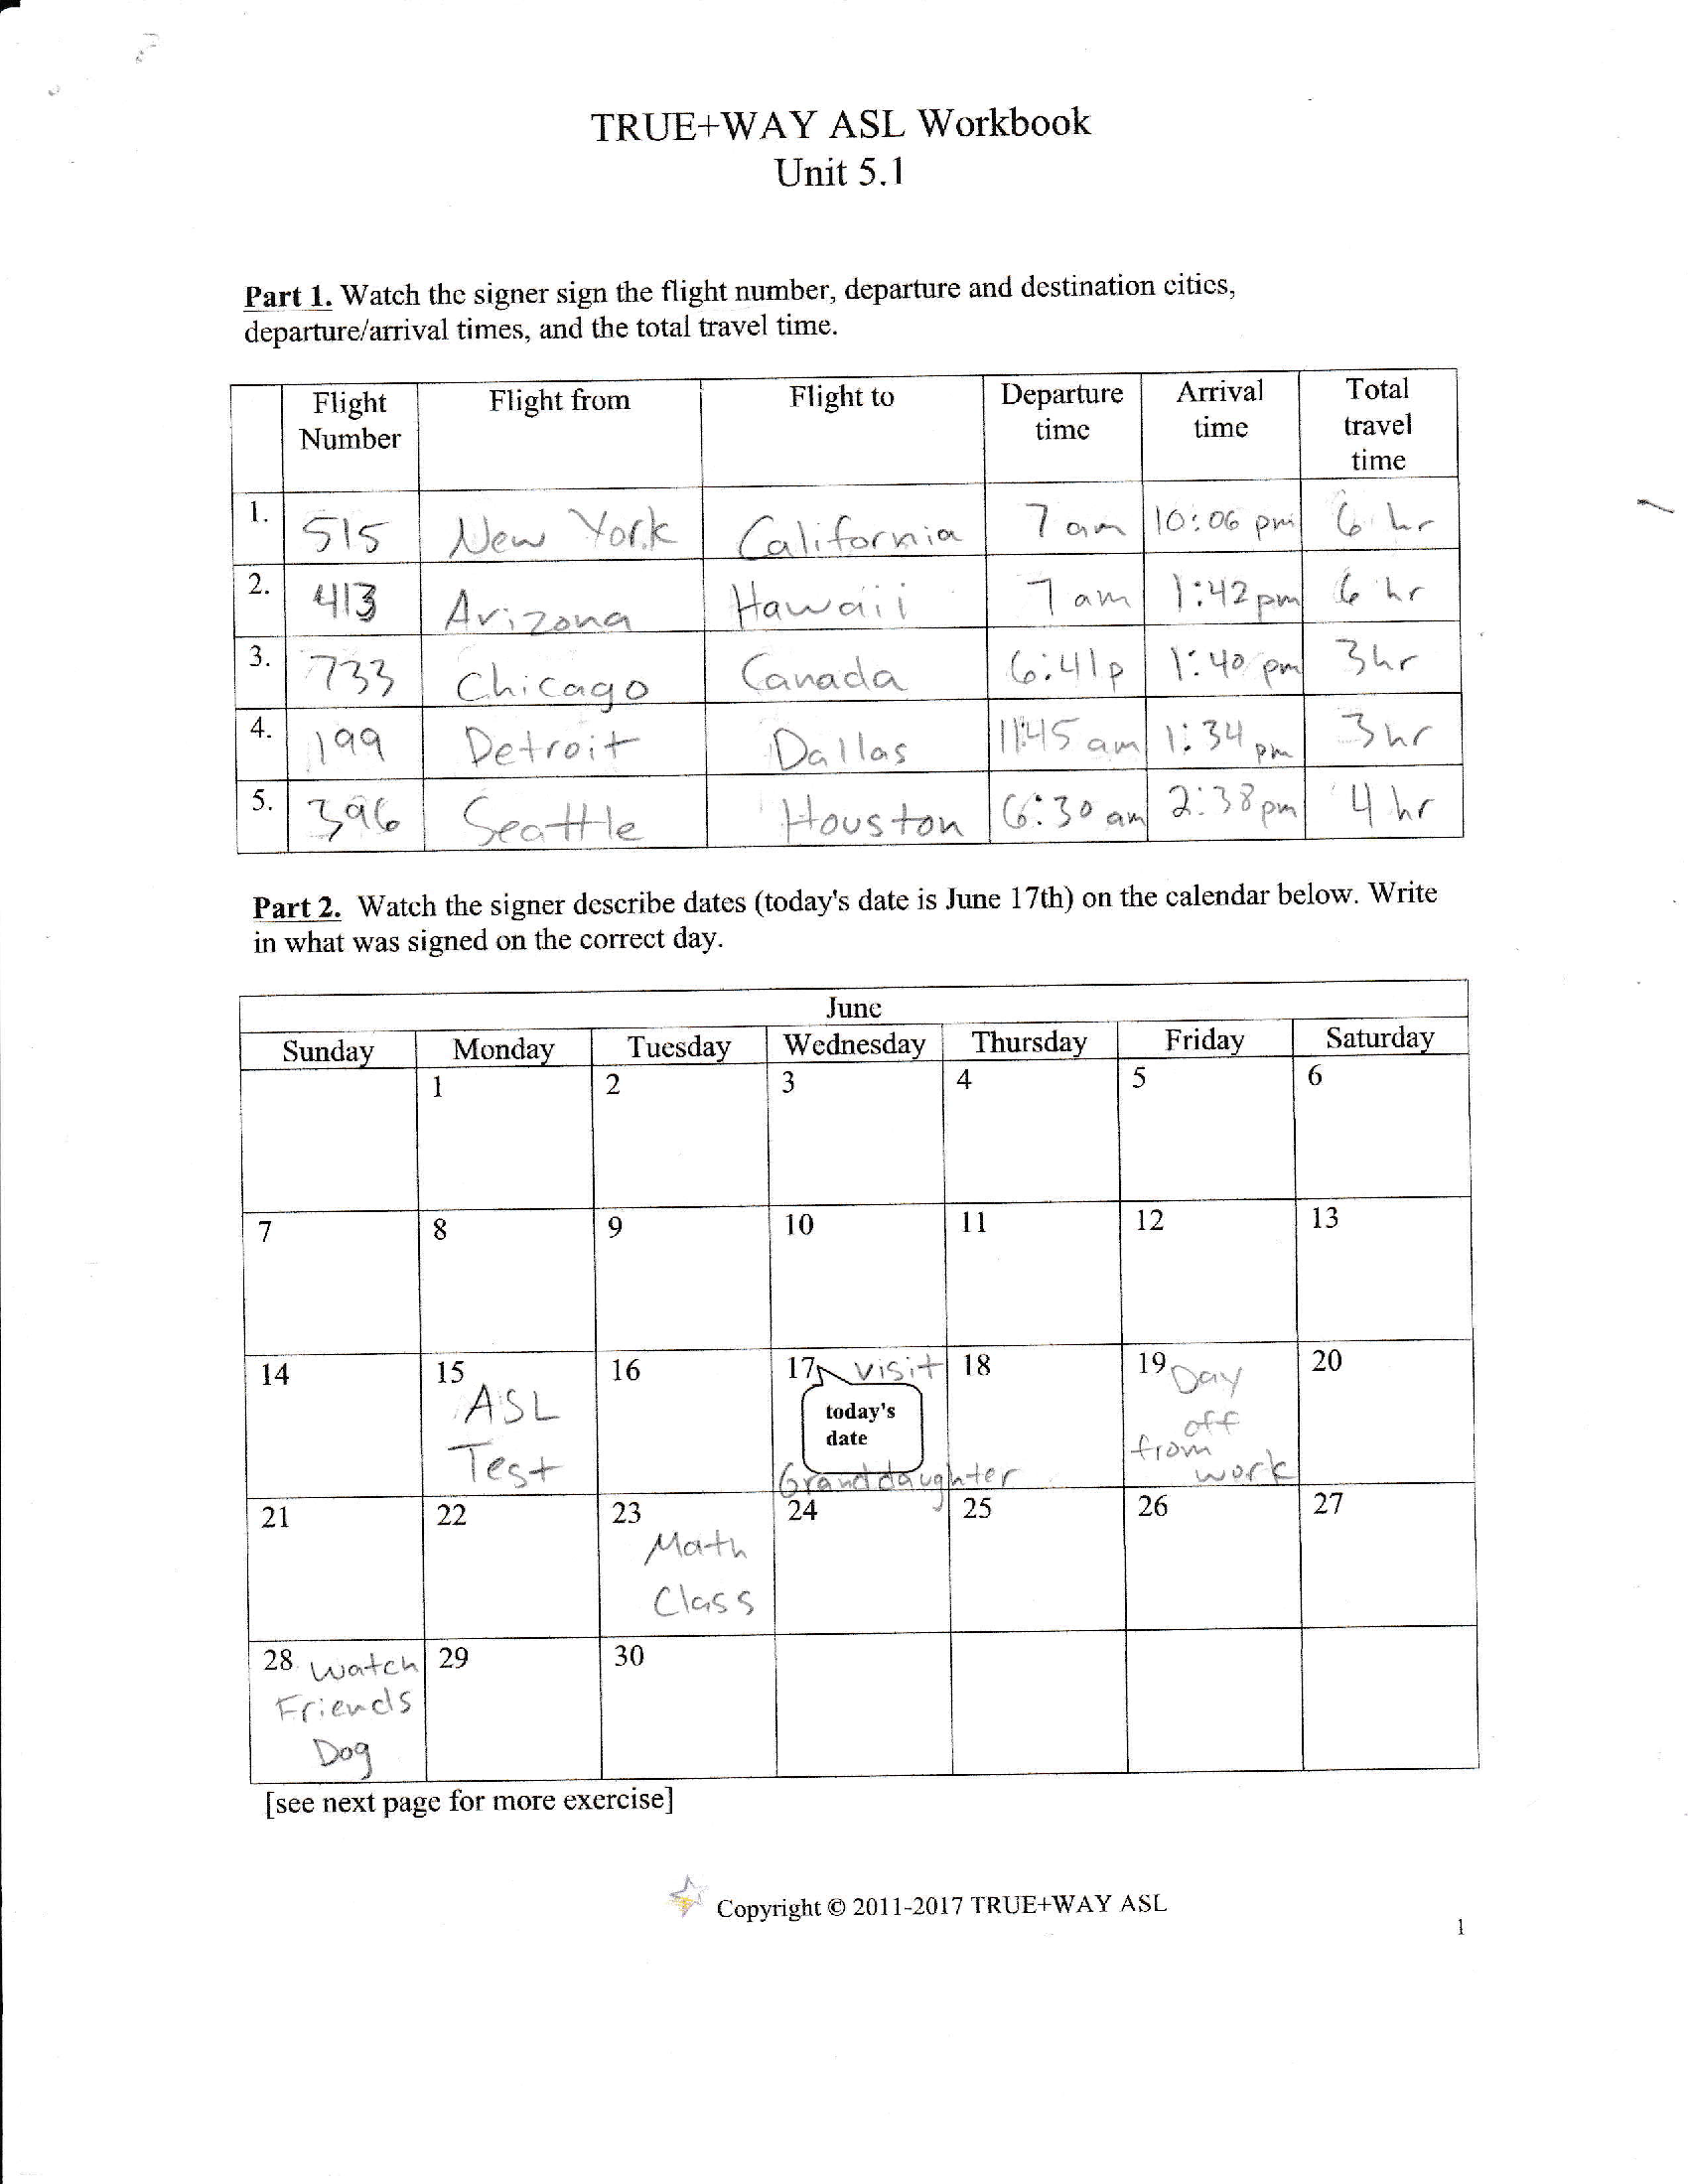 TRUE+WAY ASL Workbook
Unit 5.1
Part 1. Watch the signer sign the flight number, departure and destination cities,
departure/arrival times, and the total travel time.
Flight Number Flight from Flight to Departure time Arrival time Total travel time
1. 515 New York California 7 am 10:06 pm 6 hr
2. 413 Arizona Hawaii 7 am 1:42 pm 6 hr
3. 733 Chicago Canada 6:41 p 1:40 pm 3 hr
4. 199 Detroit Dallas 11:45 am 1:34 pm 3 hr
5. 396 Seattle Houston 6:30 am 2:38 pm 4 hr
Part 2. Watch the signer describe dates (today's date is June 17th) on the calendar below. Write
in what was signed on the correct day.
June
Sunday Monday Tuesday Wednesday Thursday Friday Saturday
1 2 3 4 5 6
7 8 9 10 11 12 13
14 15 16 17 visit 18 19 Day 20
ASL today's off
Test date from
Granddaughter work
21 22 23 24 25 26 27
Math
Class
28 watch 29 30
Friends
Dog
[see next page for more exercise]
Copyright © 2011-2017 TRUE+WAY ASL
1